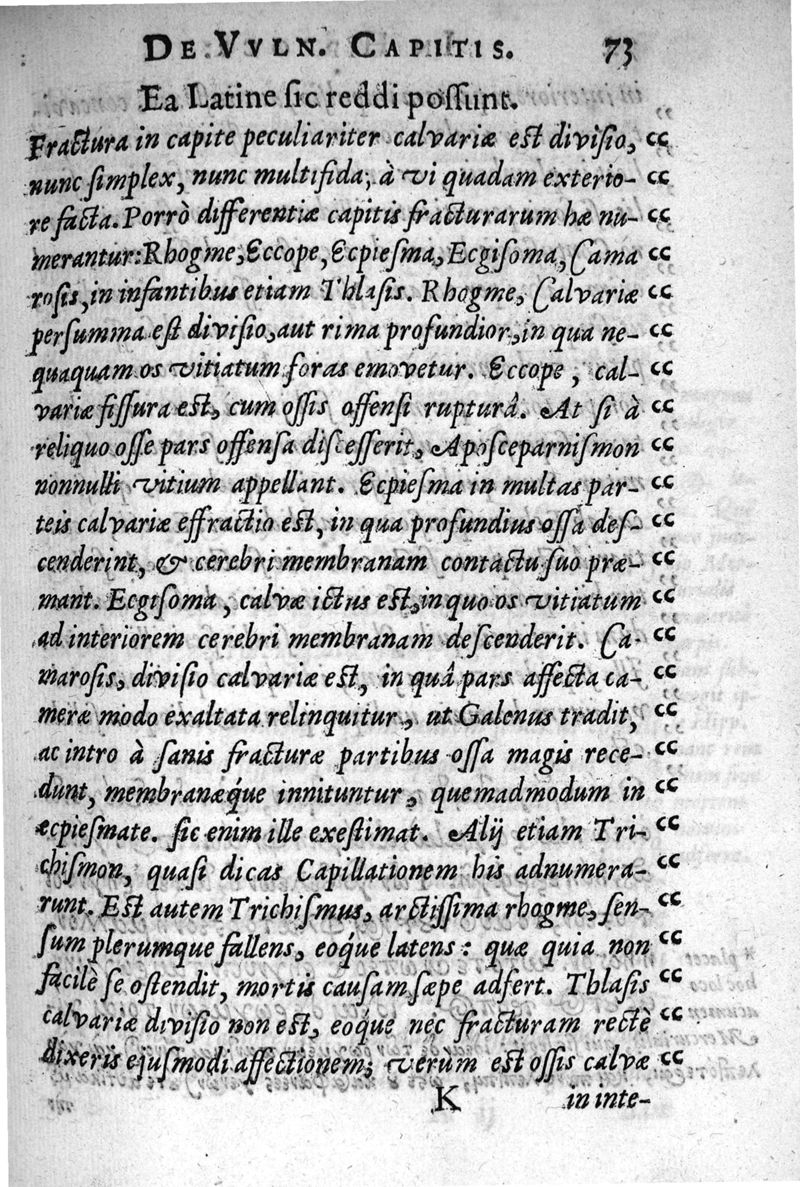 DE VVLN. CAPITIS. 73
Ea Latine sic reddi possunt.
Fractura in capite peculiariter calvariæ est divisio, „
nunc simplex, nunc multifida, à vi quadam exterio- „
re facta. Porrò differentiæ capitis fracturarum hæ nu- „
merantur: Rhogme, Eccope, Ecpiesma, Ecgisoma, Cama „
rosis, in infantibus etiam Thlasis. Rhogme, Calvariæ „
persumma est divisio, aut rima profundior, in qua ne- „
quaquam os vitiatum foras emovetur. Eccope, cal- „
variæ fissura est, cum ossis offensi rupturâ. At si à „
reliquo osse pars offensa discesserit, Aposceparnismon „
nonnulli vitium appellant. Ecpiesma in multas par- „
teis calvariæ effractio est, in qua profundius ossa des- „
cenderint, & cerebri membranam contactu suo præ- „
mant. Ecgisoma, calvæ ictus est, in quo os vitiatum „
ad interiorem cerebri membranam descenderit. Ca- „
marosis, divisio calvariæ est, in quâ pars affecta ca- „
meræ modo exaltata relinquitur, ut Galenus tradit, „
ac intro à sanis fracturæ partibus ossa magis rece- „
dunt, membranæq́ue innituntur, quemadmodum in „
ecpiesmate. sic enim ille existimat. Alij etiam Tri- „
chismon, quasi dicas Capillationem his adnumera- „
runt. Est autem Trichismus, arctissima rhogme, sen- „
sum plerumque fallens, eoq́ue latens: quæ quia non „
facilè se ostendit, mortis causam sæpe adfert. Thlasis „
calvariæ divisio non est, eoq́ue nec fracturam rectè „
dixeris ejusmodi affectionem; verùm est ossis calvæ „
K in inte-